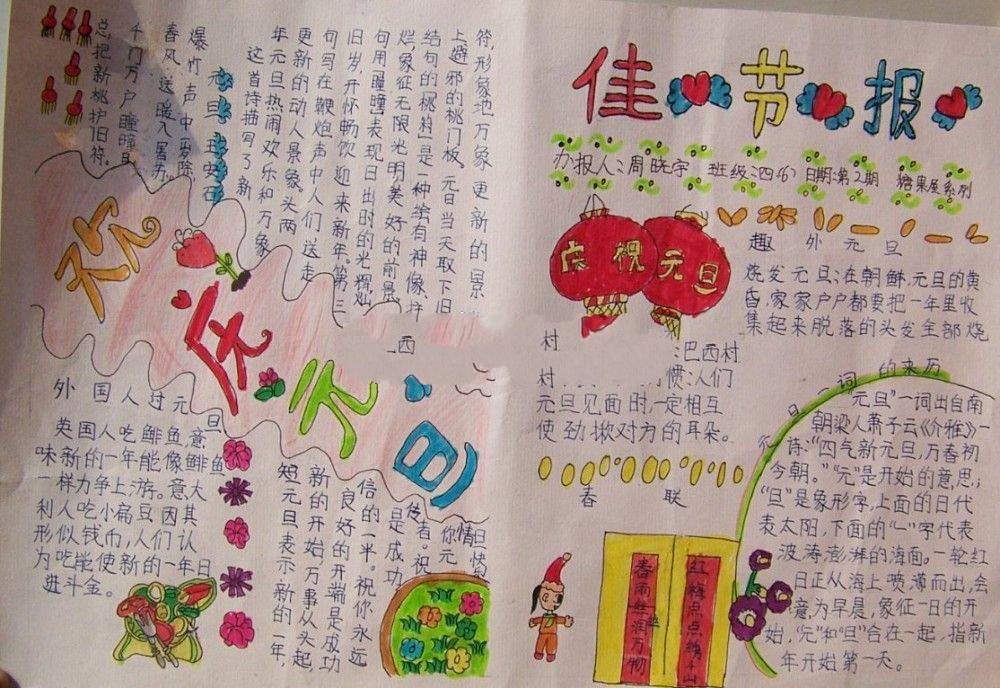 佳节报
办报人:周晓宇 班级:四(6) 日期:第2期 糖果屋系列
庆祝元旦
趣外元旦
烧发元旦:在朝鲜,元旦的黄
昏,家家户户都要把一年里收
集起来脱落的头发全部烧
村 :巴西村
村 惯:人们
元旦见面时,一定相互
使劲揪对方的耳朵。
春联
春雨丝丝润万物
红梅点点绣千山
一词的来历
元旦"一词出自南
朝梁人萧子云《介雅》一
诗:"四气新元旦,万春初
今朝。""元"是开始的意思;
"旦"是象形字,上面的日代
表太阳,下面的"一"字代表
波涛澎湃的海面。一轮红
日正从海上喷薄而出,会
意为早晨,象征一日的开
始,"元"和"旦"合在一起,指新
年开始第一天。
元旦 王安石
爆竹声中一岁除
春风送暖入屠苏
千门万户瞳瞳日
总把新桃护旧符。
这首诗描写了新
年元旦热闹欢乐和万象
更新的动人景象,头两
句写在鞭炮声中人们送走
旧岁,开怀畅饮迎来新年。第三
句用"瞳瞳"表现日出时的光辉灿
烂,象征无限光明美好的前景
结句的"桃符"是一种绘有神像、挂
上避邪的桃门板,元日当天取下旧
符,形象地万象更新的景
祝庆元旦
西
外国人过元旦
英国人吃鲱鱼,意
味新的一年能像鲱鱼
一样力争上游。意大
利人吃小扁豆,因其
形似钱币,人们认
为吃能使新的一年日
进斗金。
短元旦表示新的一年,
新的开始万事从头起,
良好的开端是成功
信的一半。祝你永远
是成功
使者。祝
你元
旦
情